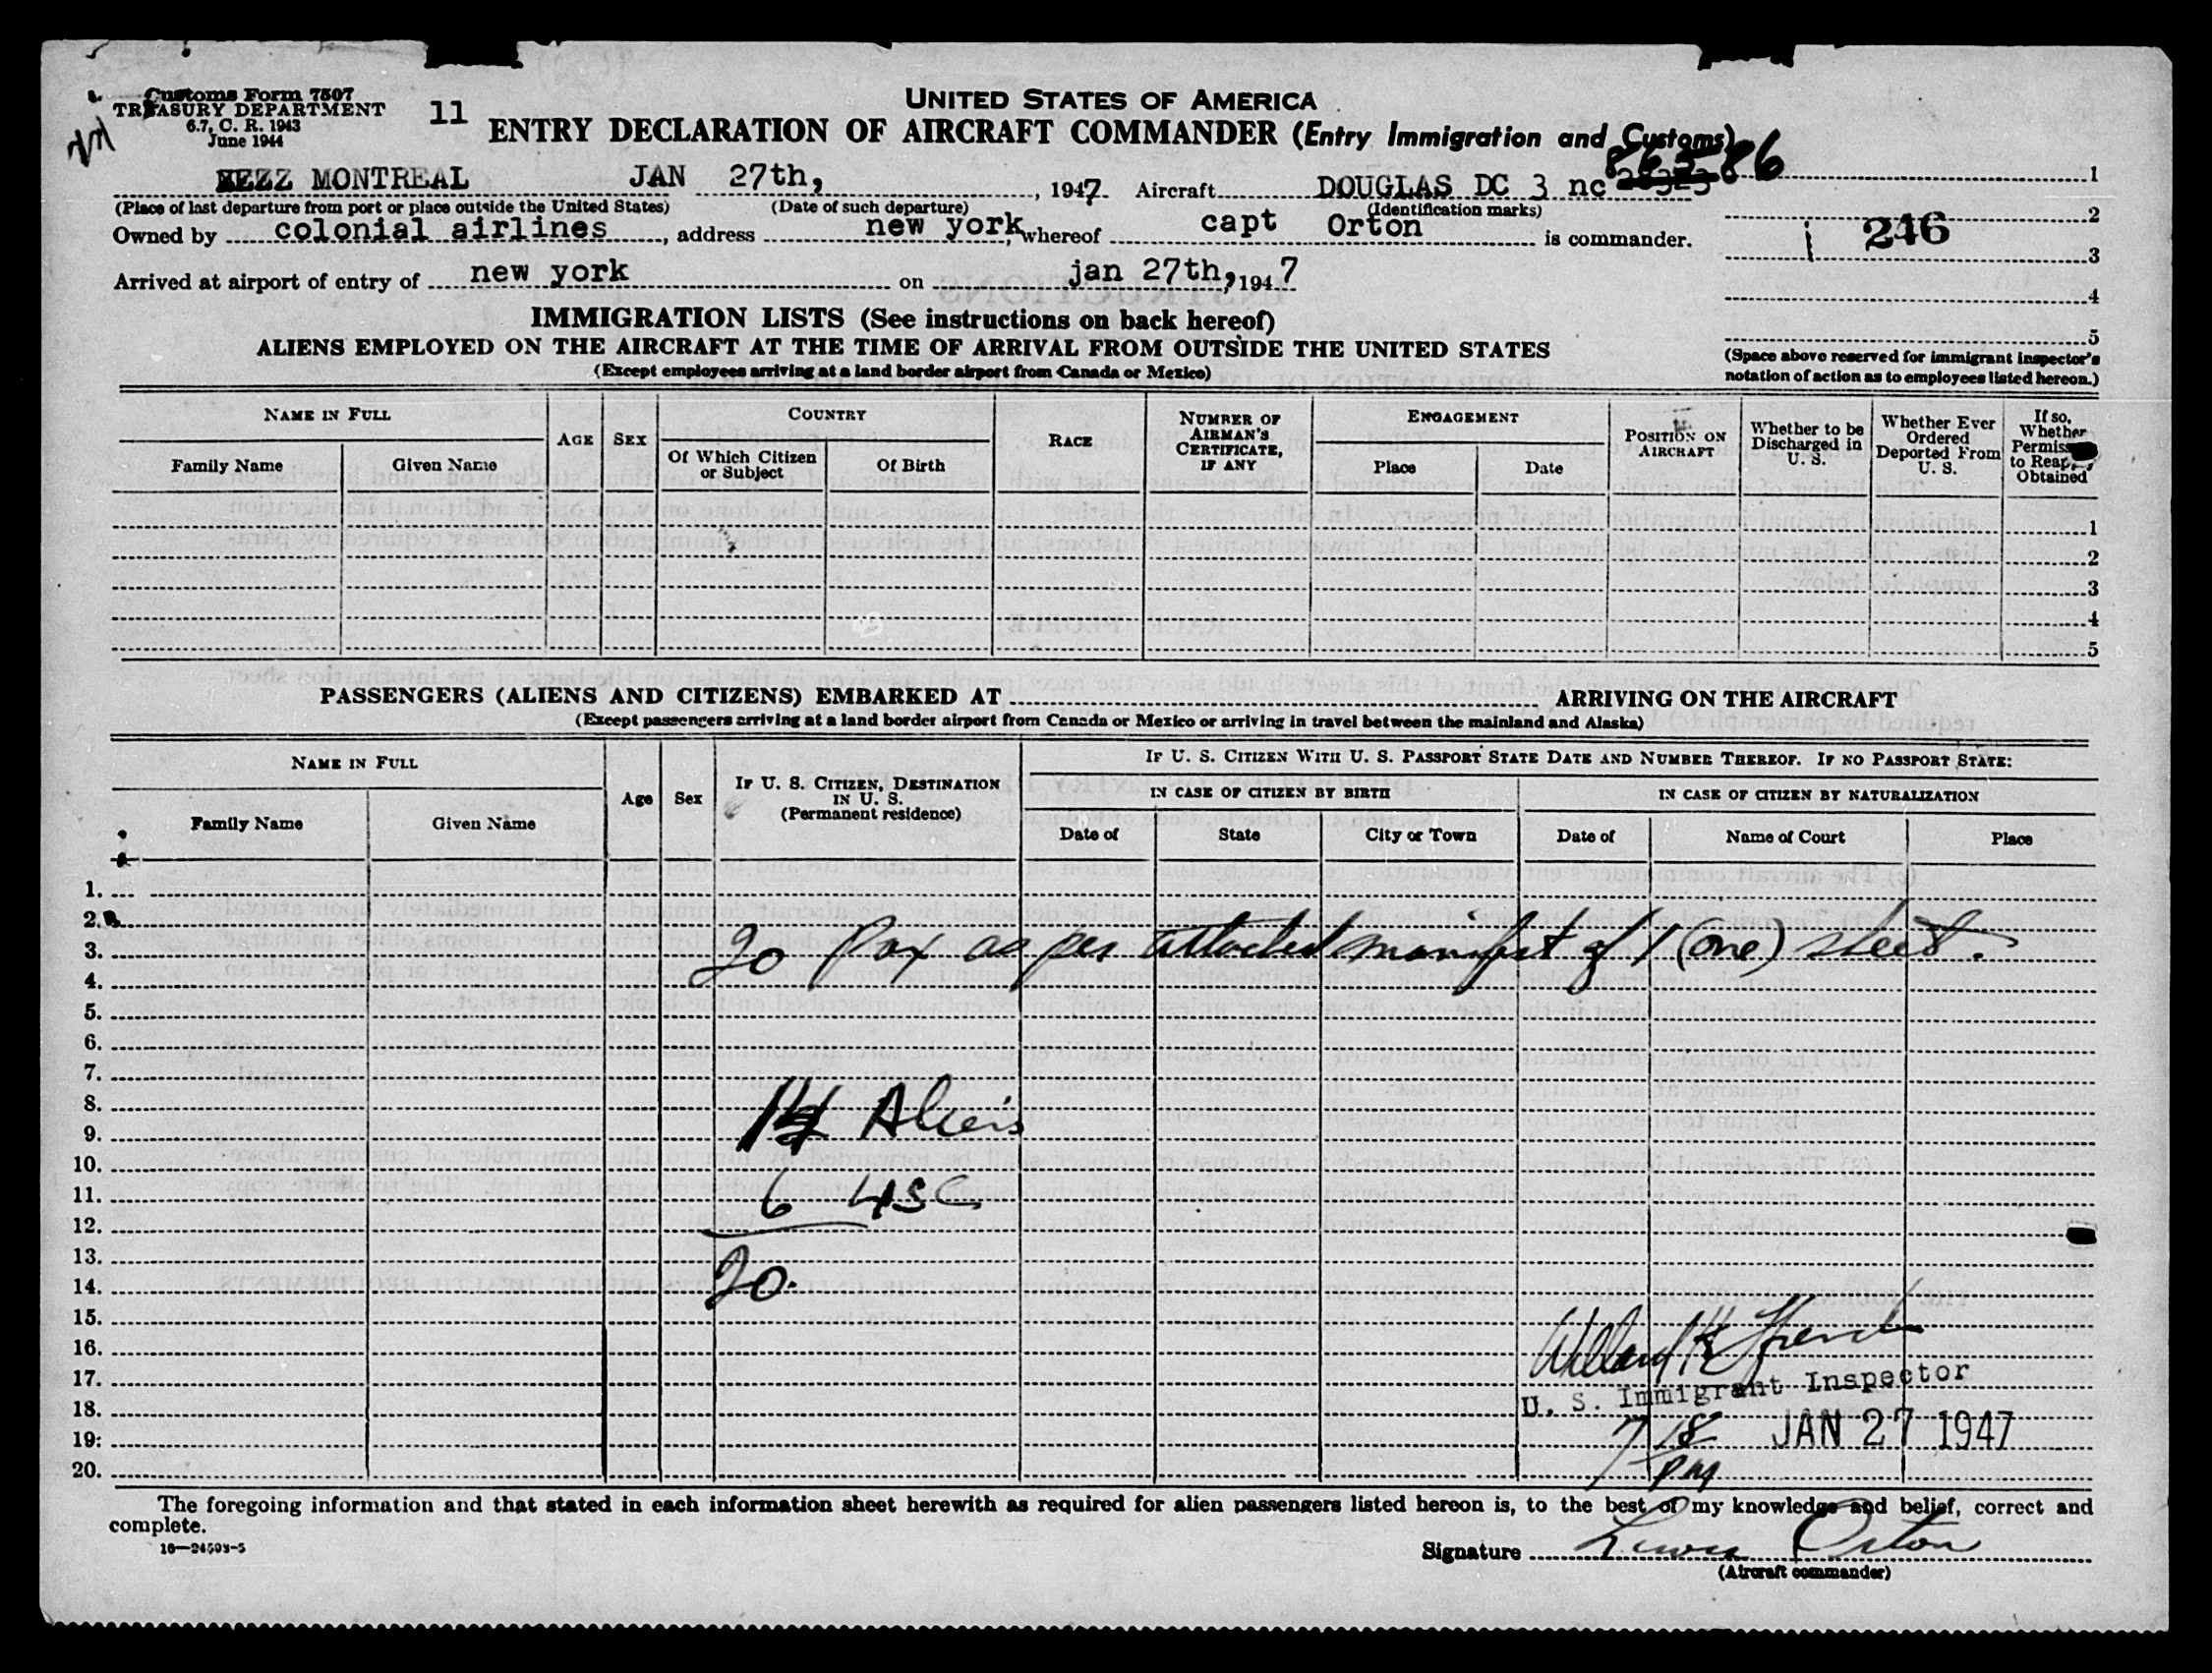 Customs Form 7507
TREASURY DEPARTMENT
6.7, C. R. 1943
June 1944
11
UNITED STATES OF AMERICA
ENTRY DECLARATION OF AIRCRAFT COMMANDER (Entry Immigration and Customs)
MONTREAL JAN 27th, , 1947 Aircraft DOUGLAS DC 3 nc 86586
(Place of last departure from port or place outside the United States) (Date of such departure) (Identification marks)
Owned by colonial airlines, address new york, whereof capt Orton is commander.
Arrived at airport of entry of new york on jan 27th, 1947
1
2
246
3
4
5
(Space above reserved for immigrant inspector's
notation of action as to employees listed hereon.)
IMMIGRATION LISTS (See instructions on back hereof)
ALIENS EMPLOYED ON THE AIRCRAFT AT THE TIME OF ARRIVAL FROM OUTSIDE THE UNITED STATES
(Except employees arriving at a land border airport from Canada or Mexico)
NAME IN FULL
Family Name Given Name
AGE
SEX
COUNTRY
Of Which Citizen or Subject
Of Birth
RACE
NUMBER OF AIRMAN'S CERTIFICATE, IF ANY
ENGAGEMENT
Place Date
POSITION ON AIRCRAFT
Whether to be Discharged in U. S.
Whether Ever Ordered Deported From U. S.
If so, Whether Obtained
1
2
3
4
5
PASSENGERS (ALIENS AND CITIZENS) EMBARKED AT ARRIVING ON THE AIRCRAFT
(Except passengers arriving at a land border airport from Canada or Mexico or arriving in travel between the mainland and Alaska)
NAME IN FULL
Family Name Given Name
Age
Sex
IF U. S. CITIZEN, DESTINATION IN U. S.
(Permanent residence)
IF U. S. CITIZEN WITH U. S. PASSPORT STATE DATE AND NUMBER THEREOF. IF NO PASSPORT STATE:
IN CASE OF CITIZEN BY BIRTH
Date of State City or Town
IN CASE OF CITIZEN BY NATURALIZATION
Date of Name of Court Place
1.
2.
3. 20 Pax as per attached manifest of 1 (one) sheet.
4.
5.
6.
7.
8.
9. 14 Aliens
10.
11. 6 USC
12.
13.
14. 20.
15.
16.
17.
U. S. Immigrant Inspector
18.
19. 7 18 JAN 27 1947
20. PM
The foregoing information and that stated in each information sheet herewith as required for alien passengers listed hereon is, to the best of my knowledge and belief, correct and
complete.
Signature Orton
(Aircraft commander)